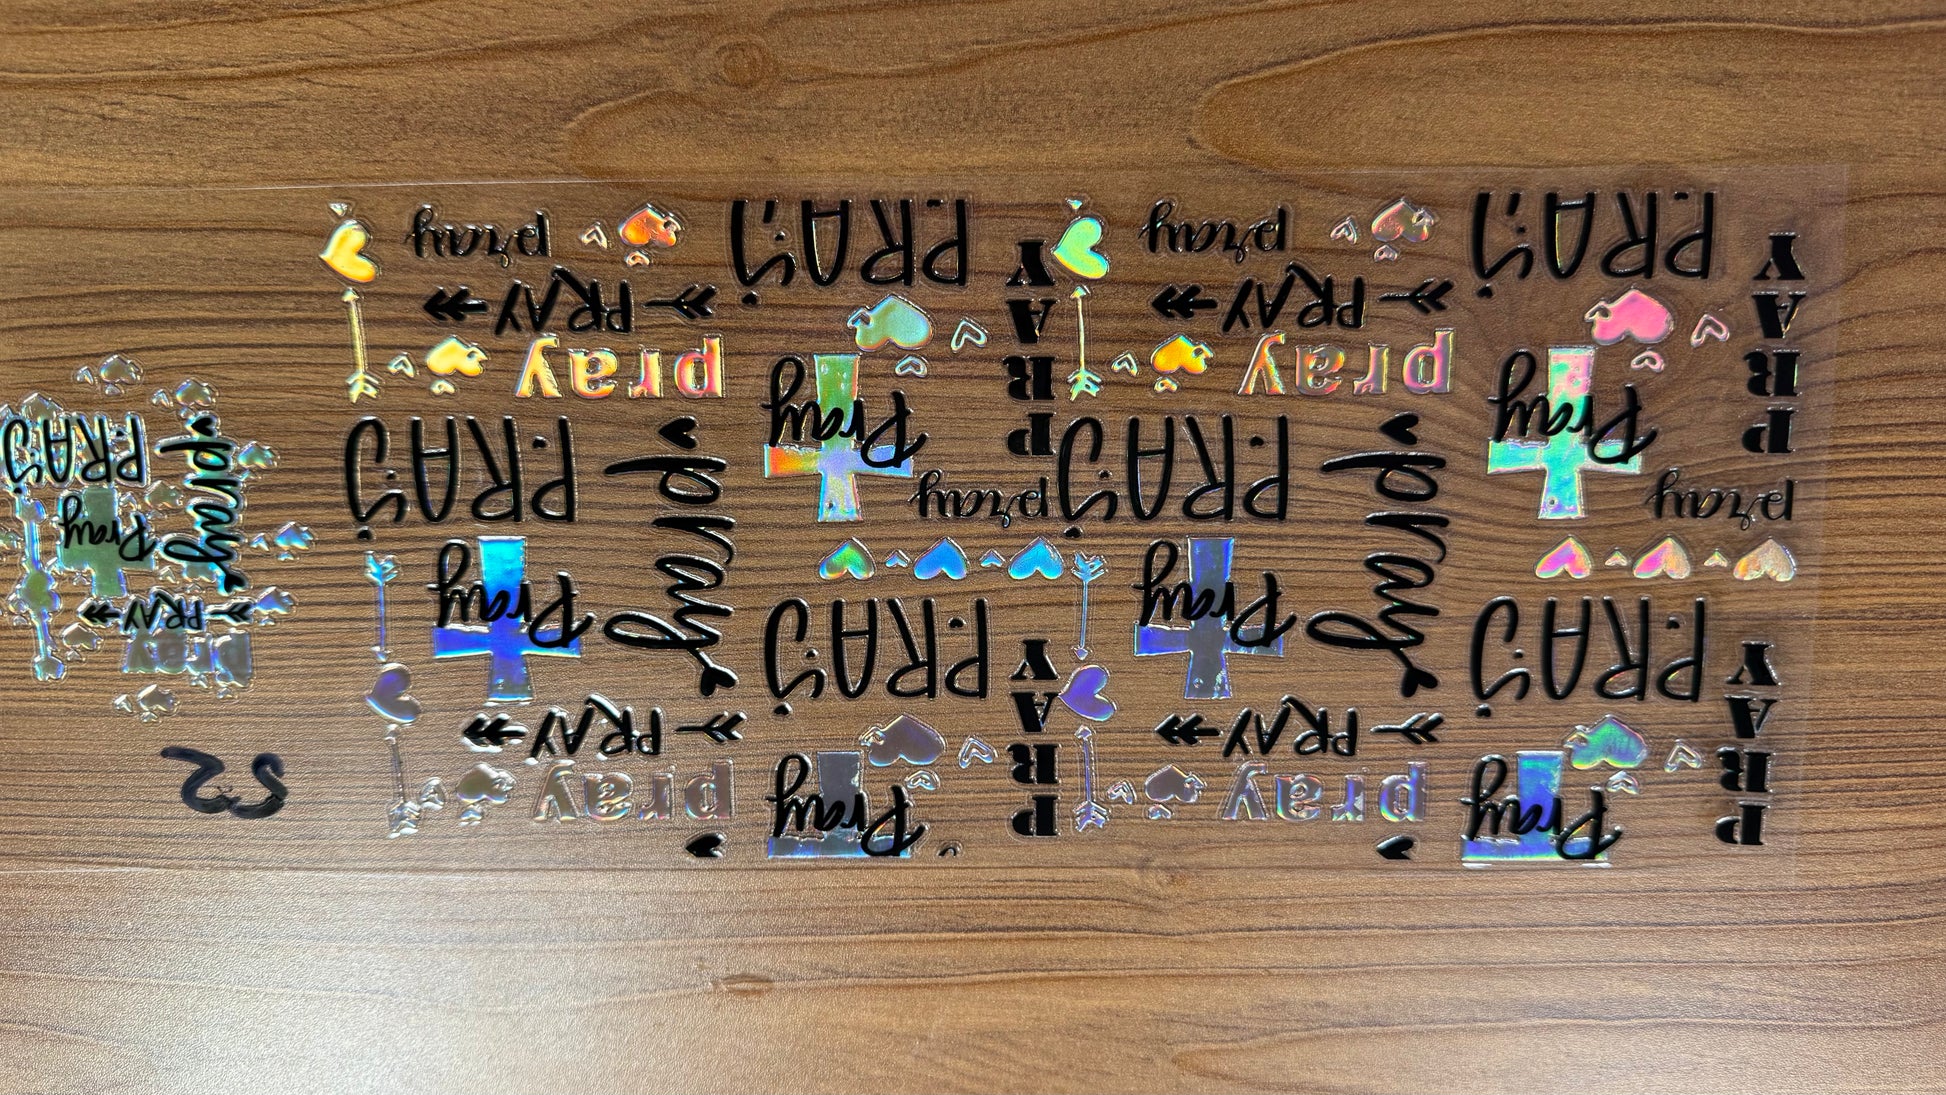 PRAY
Pray
pray
PRAY
Pray
pray
PRAY
PRAY
pray
PRAY
PRAY
PRAY
pray
Pray
pray
Pray
pray
Pray
pray
PRAY
pray
pray
PRAY
PRAY
PRAY
Pray
pray
PRAY
Pray
pray
PRAY
PRAY
PRAY
pray
PRAY
pray